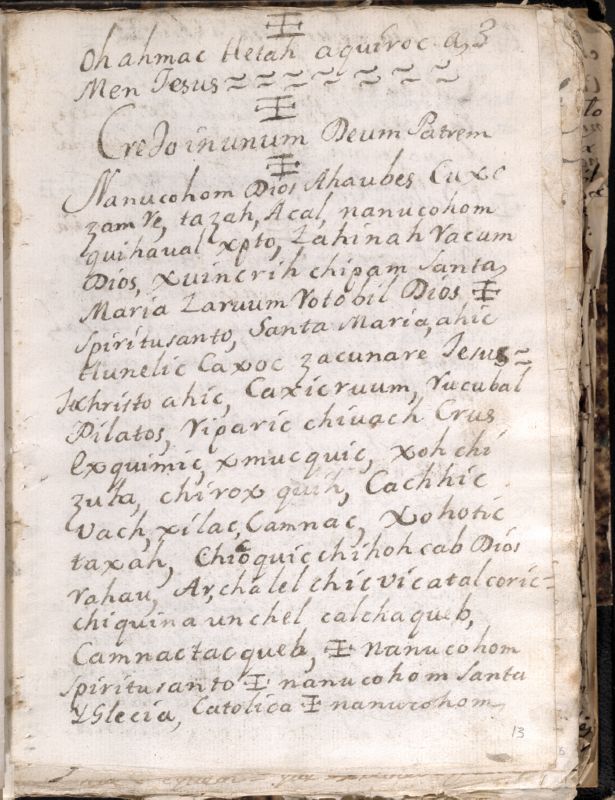 Oh ahmac tletah aquiroc a,3
Men Jesus ~ ~ ~ ~ ~ ~ ~ ~
Credo in unum Deum Patrem
Nanucohom Dios Ahaubes Cuxe
zam Ve, tazah, Acal, nanucohom
quihaual xpto, Lahinah Vacum
Dios, xuincrih chipam Santa,
Maria Laruum Votobil Dios ✠
Spiritusanto, Santa Maria, ahic
tlunelic Caxoc zacunare Jesus =
Jxchristo ahic, Caxicruum, Vucubal
Pilatos, Viparic chiuach Crus
Exquimic, xmucquic, xoh chi
zuta, chirox quih, Cachhic
Vach, xilac, Camnac, Xohotic
taxah, Chiocquic chihoh cab Dios
rahau, Archalel chic vicatalcoric =
chiquina unchel calchaqueb,
Camnactacqueb, ✠ nanucohom
Spiritusanto ✠ nanucohom Santa
YGlecia, Catolica ✠ nanucohom,
13